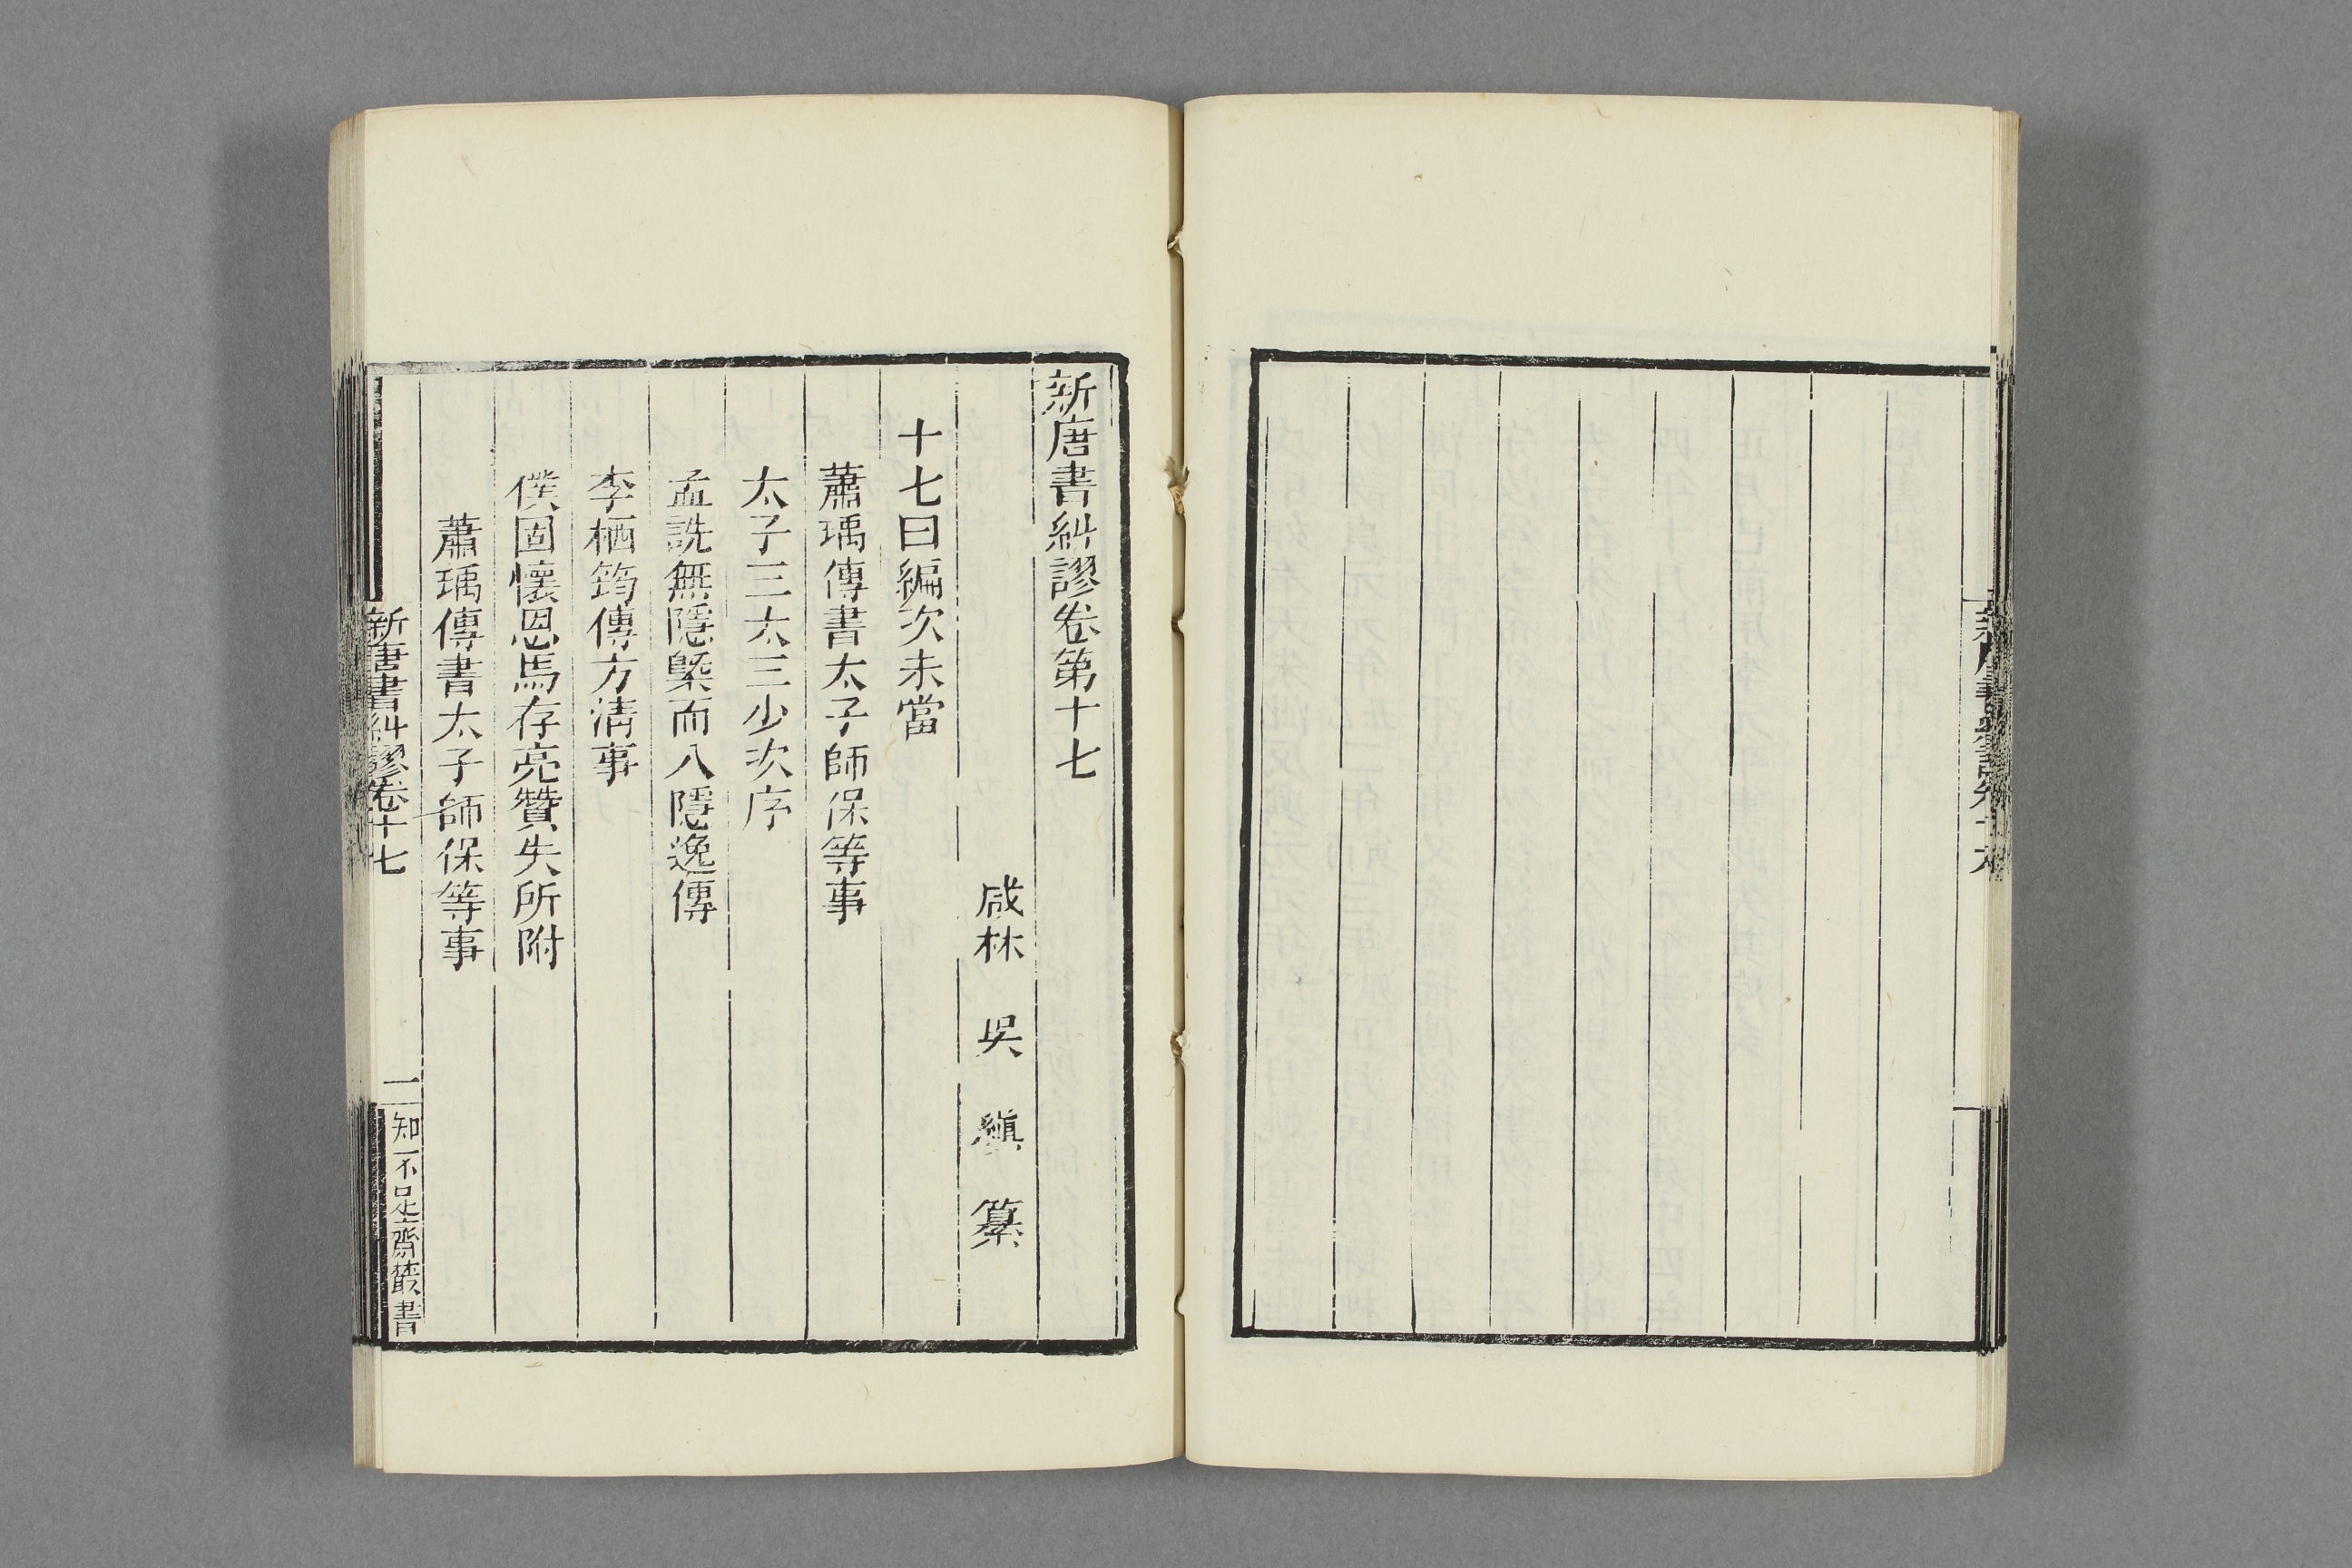 新唐書糾謬卷第十七
咸林　吳　縝　纂
十七曰編次未當
蕭瑀傳書太子師保等事
太子三太三少次序
孟詵無隱槩而入隱逸傳
李栖筠傳方清事
僕固懷恩馬存亮贊失所附
蕭瑀傳書太子師保等事
新唐書糾謬卷十七
一
知不足齋叢書